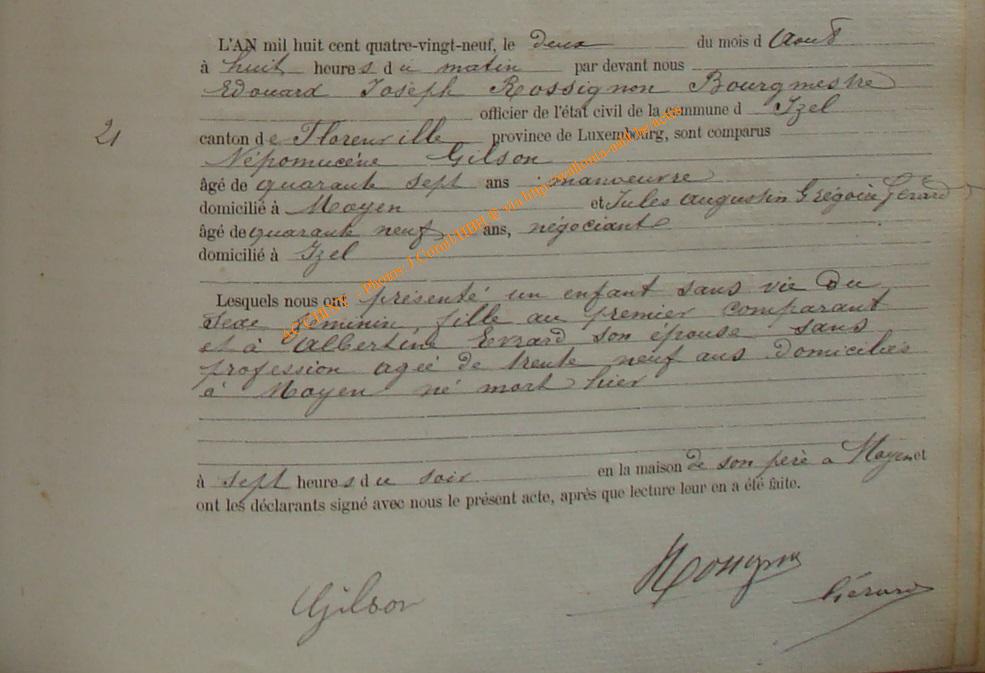 L'AN mil huit cent quatre-vingt-neuf, le deux du mois d Août
à huit heures du matin par devant nous
Edouard Joseph Rossignon Bourgmestre
officier de l'état civil de la commune d Izel
21 canton de Florenville province de Luxembourg, sont comparus
Népomucène Gilson
âgé de quarante sept ans manoeuvre
domicilié à Moyen et Jules Augustin Grégoire Gérard
âgé de quarante neuf ans, négociant
domicilié à Izel
Lesquels nous ont présenté un enfant sans vie du
sexe féminin, fille au premier comparant
et à Albertine Evrard son épouse sans
profession agée de trente neuf ans domiciliés
à Moyen né mort hier
à sept heures du soir en la maison de son père à Moyen et
ont les déclarants signé avec nous le présent acte, après que lecture leur en a été faite.
Gilson
Gérard